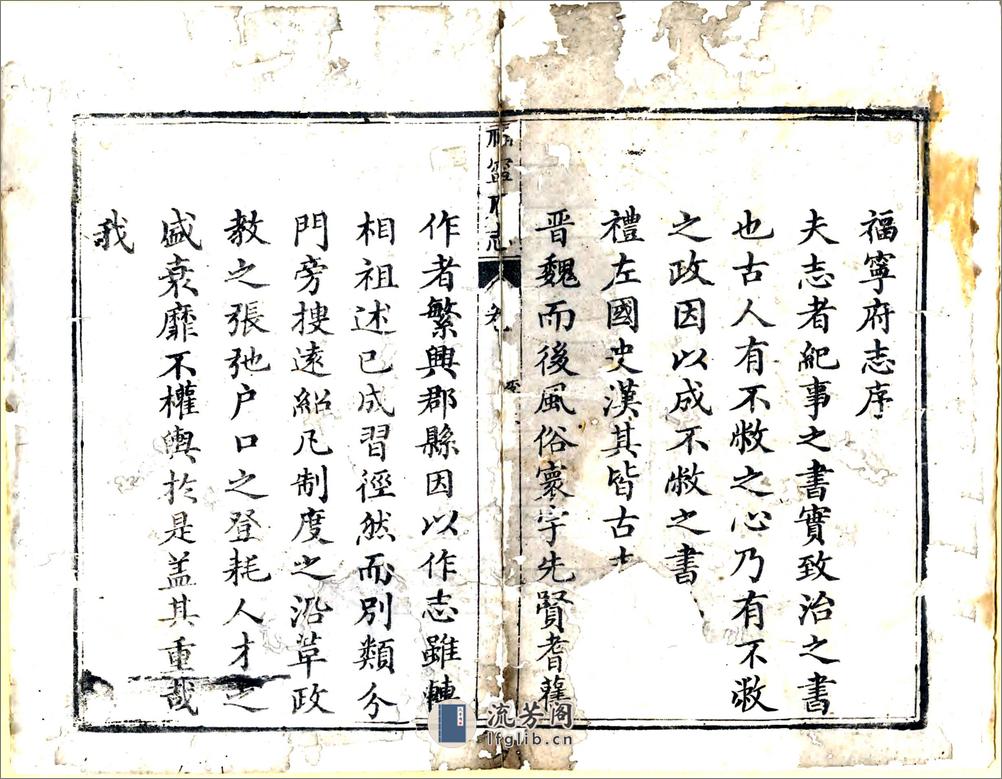 福寧府志序
夫志者紀事之書實致治之書
也古人有不敝之心乃有不敝
之政因以成不敝之書
禮左國史漢其皆古
晋魏而後風俗寰宇先賢耆舊
福寧府志 卷 序
作者繁興郡縣因以作志雖轉
相祖述已成習徑然而別類分
門旁搜遠紹凡制度之沿革政
教之張弛户口之登耗人才之
盛衰靡不權輿於是盖其重哉
我
流芳阁
lfglib.cn